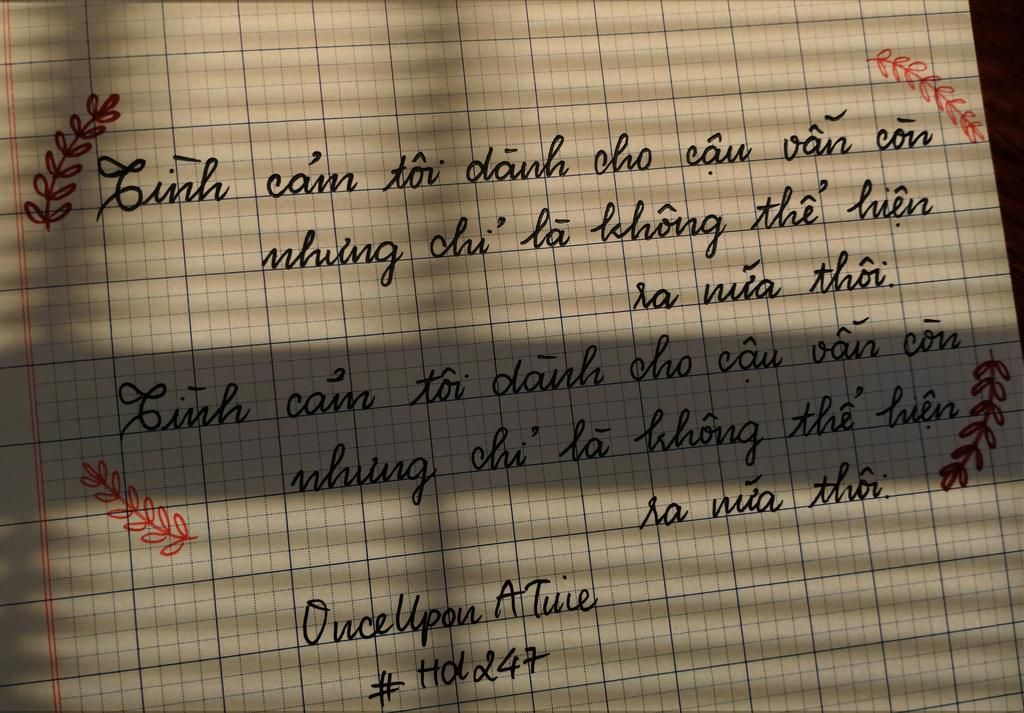 Tình cảm tôi dành cho cậu vẫn còn
nhưng chỉ là không thể hiện
ra nữa thôi.
Tình cảm tôi dành cho cậu vẫn còn
nhưng chỉ là không thể hiện
ra nữa thôi.
OnceUpon A Time
# Hd247